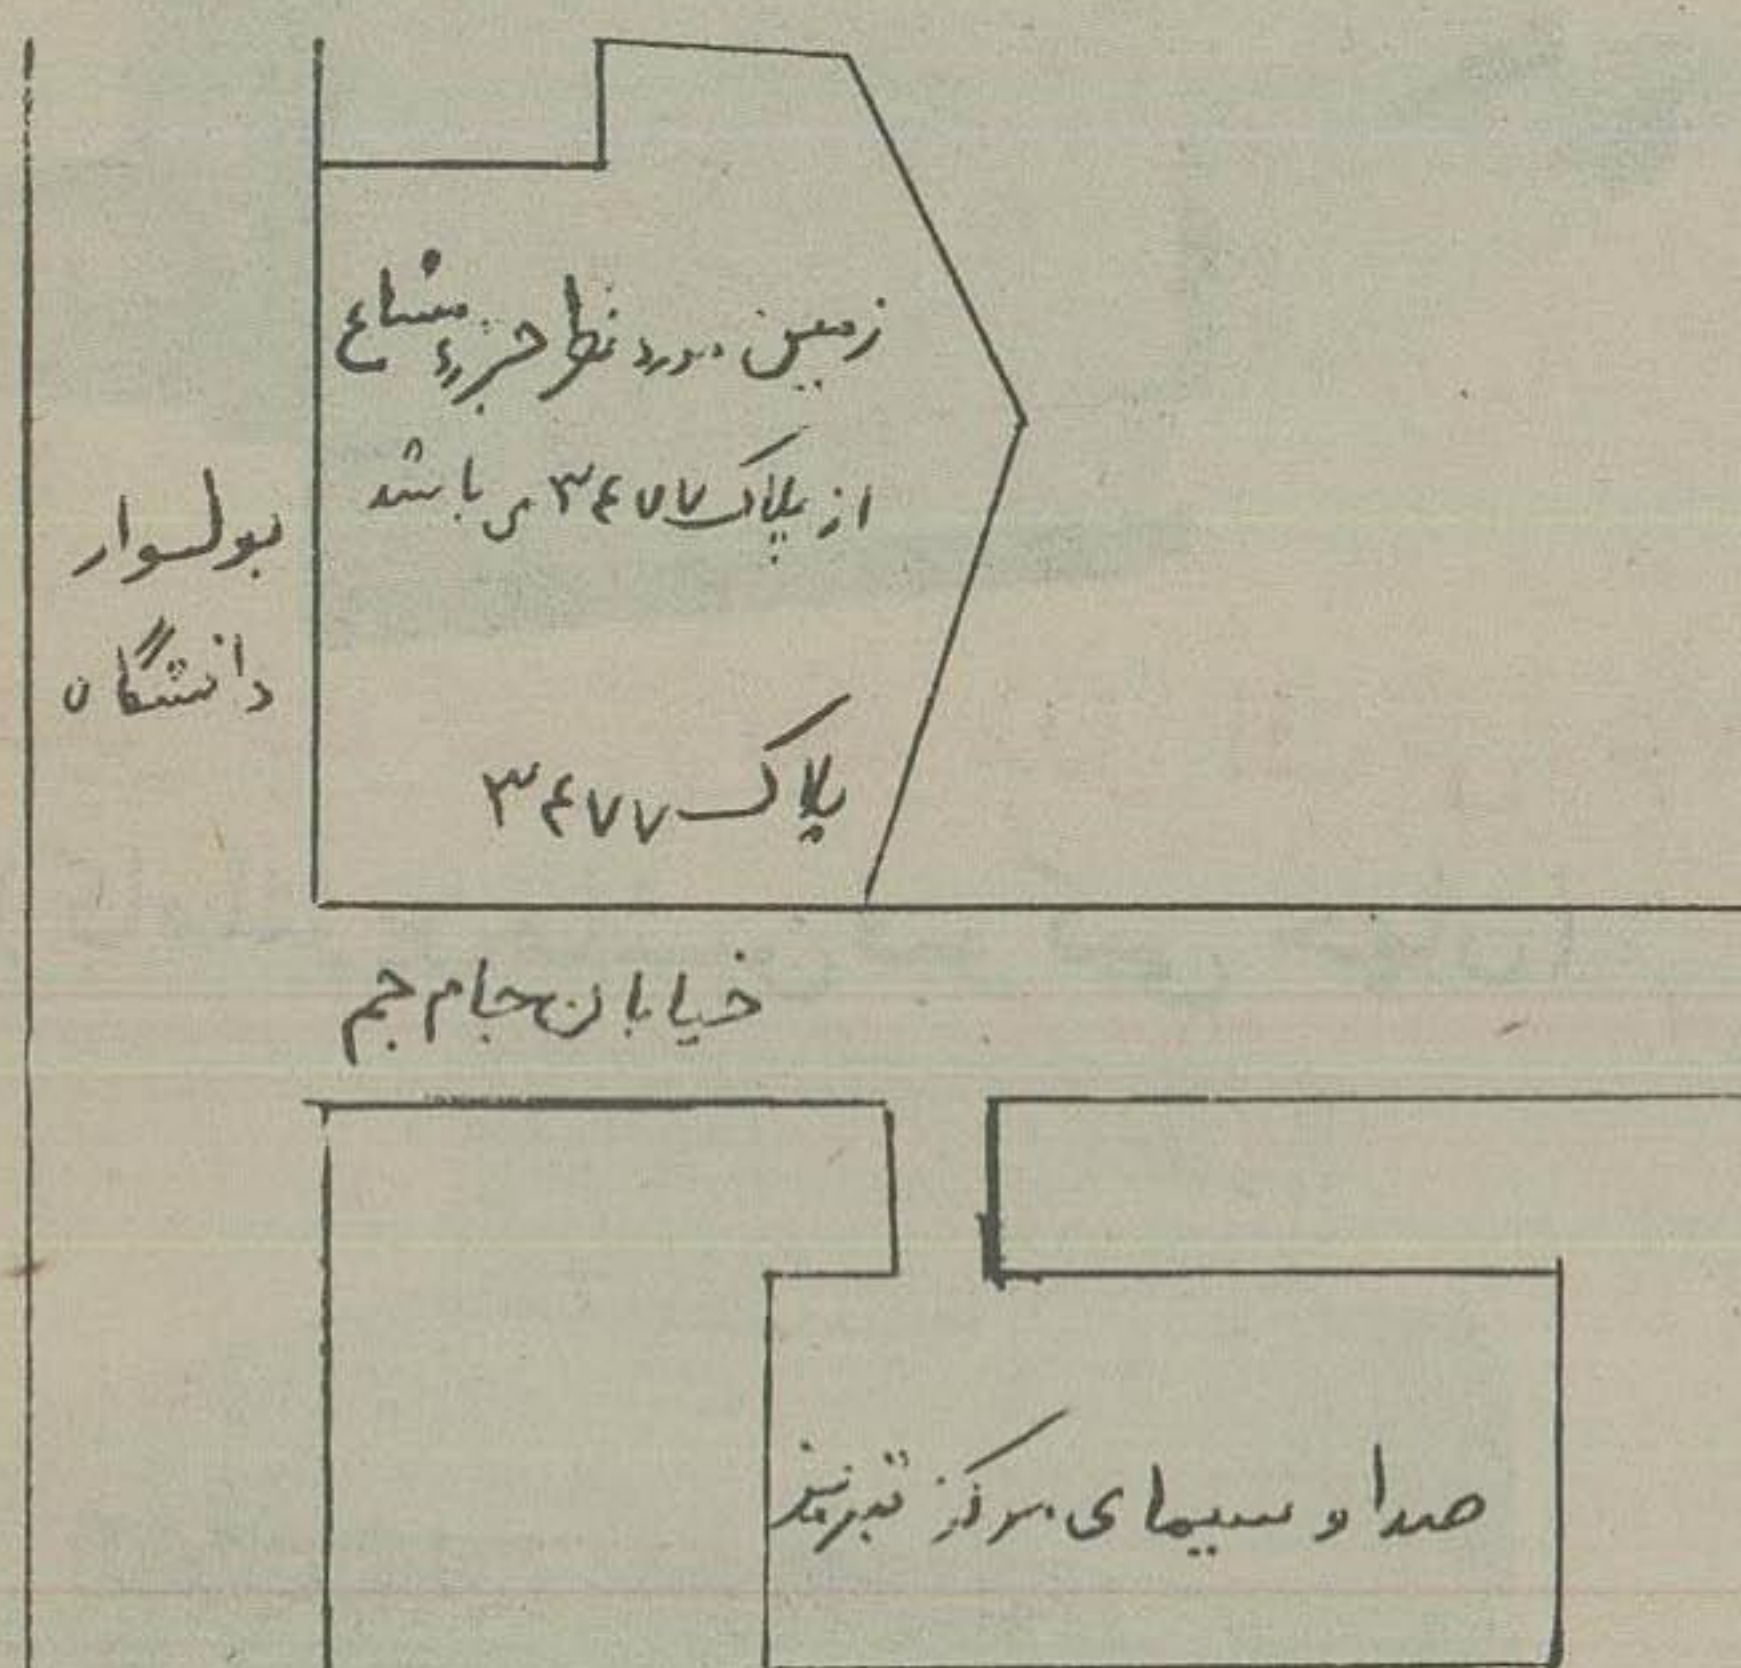 زمین مورد نظر جزء مشاع
از پلاک ۳۴۷۷ می باشد
پلاک ۳۴۷۷
بولوار
دانشگاه
خیابان جام جم
صدا و سیمای مرکز تبریز